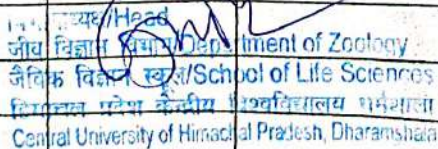 अध्यक्ष/Head
जीव विज्ञान विभाग/Department of Zoology
जैविक विज्ञान स्कूल/School of Life Sciences
हिमाचल प्रदेश केन्द्रीय विश्वविद्यालय धर्मशाला
Central University of Himachal Pradesh, Dharamshala